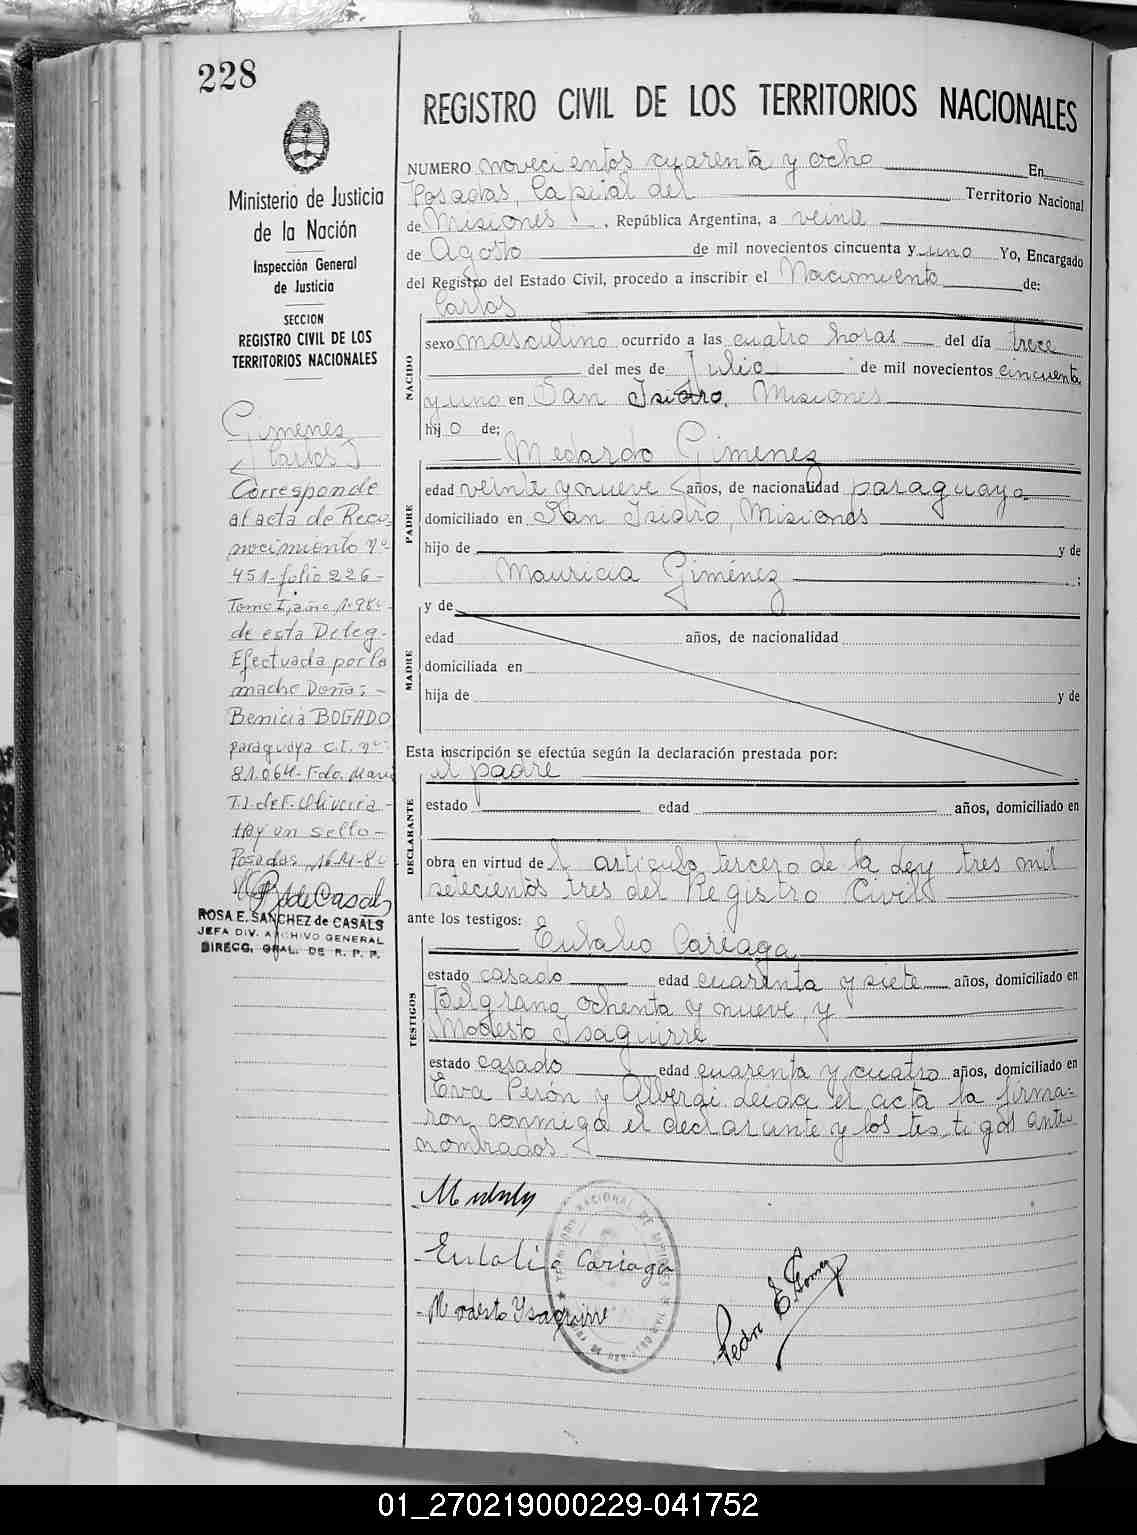 228
Ministerio de Justicia
de la Nación
Inspección General
de Justicia
SECCION
REGISTRO CIVIL DE LOS
TERRITORIOS NACIONALES
Gimenez
Carlos
Corresponde
al acta de Reco-
nocimiento nº
451-folio 226-
Tomo I, año
de esta Deleg-
Efectuada por la
madre Doña:-
Benicia BOGADO
paraguaya C.I. nº
81.064- Fdo. Maria
T.J. de F. Oliveira-
Hay un sello-
Posadas,
ROSA E. SANCHEZ de CASALS
JEFA DIV. ARCHIVO GENERAL
DIRECC. GRAL. DE R. P. P.
REGISTRO CIVIL DE LOS TERRITORIOS NACIONALES
NUMERO novecientos cuarenta y ocho En
Posadas, Capital del Territorio Nacional
de Misiones, República Argentina, a veinte
de Agosto de mil novecientos cincuenta y uno Yo, Encargado
del Registro del Estado Civil, procedo a inscribir el Nacimiento de:
Carlos
NACIDO
sexo masculino ocurrido a las cuatro horas del día trece
del mes de Julio de mil novecientos cincuenta
y uno en San Isidro, Misiones
hijo de;
Medardo Gimenez
PADRE
edad veinte y nueve años, de nacionalidad paraguaya
domiciliado en San Isidro, Misiones
hijo de y de
Mauricia Giménez ;
MADRE
y de
edad años, de nacionalidad
domiciliada en
hija de y de
Esta inscripción se efectúa según la declaración prestada por:
el padre
DECLARANTE
estado edad años, domiciliado en
obra en virtud del artículo tercero de la Ley tres mil
setecientos tres del Registro Civil
ante los testigos:
Eulalio Cariaga
TESTIGOS
estado casado edad cuarenta y siete años, domiciliado en
Belgrano ochenta y nueve, y
Modesto Isaguirre
estado casado edad cuarenta y cuatro años, domiciliado en
Eva Perón y Alberdi. Leída el acta la firma-
ron conmigo el declarante y los testigos ante
nombrados.
Eulalio Cariaga
Modesto Ysaguirre
Pedro E. Gomez
01_270219000229-041752